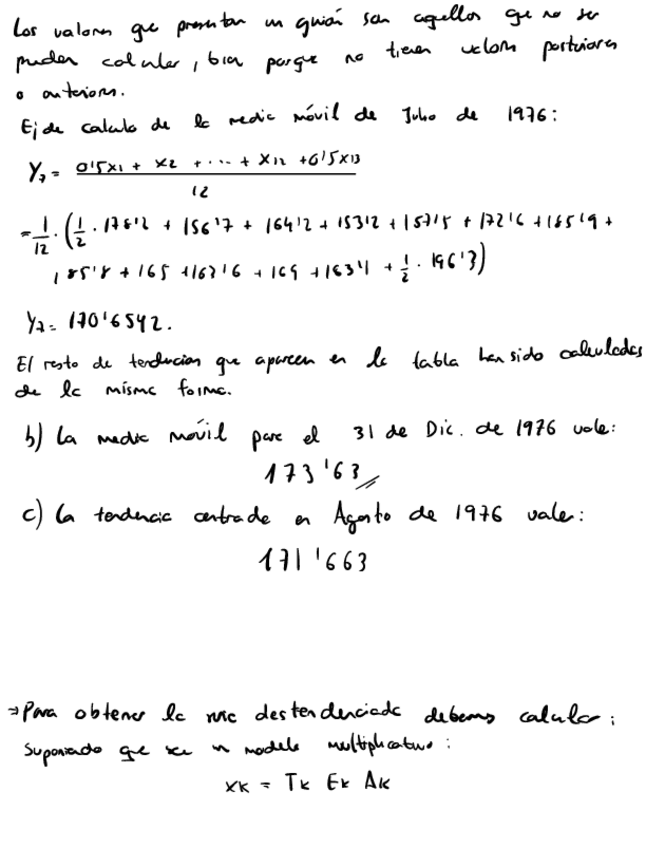 Los valores que presentan un guión son aquellos que no se
pueden calcular, bien porque no tienen valores posteriores
o anteriores.
Ej de calculo de la media móvil de Julio de 1976:
Y₇ = (0'5x1 + x2 + ... + x12 + 0'5x13) / 12
= 1/12 · (1/2 · 178'2 + 156'7 + 164'2 + 153'2 + 157'5 + 172'6 + 185'9 +
185'8 + 165 + 163'6 + 169 + 183'1 + 1/2 · 196'3)
Y₇ = 170'6542.
El resto de tendencias que aparecen en la tabla han sido calculadas
de la misma forma.
b) La media móvil para el 31 de Dic. de 1976 vale:
173'63
c) La tendencia centrada en Agosto de 1976 vale:
171'663
→ Para obtener la destendenciada debemos calcular:
Suponiendo que sea un modelo multiplicativo:
xk = Tk Ek Ak